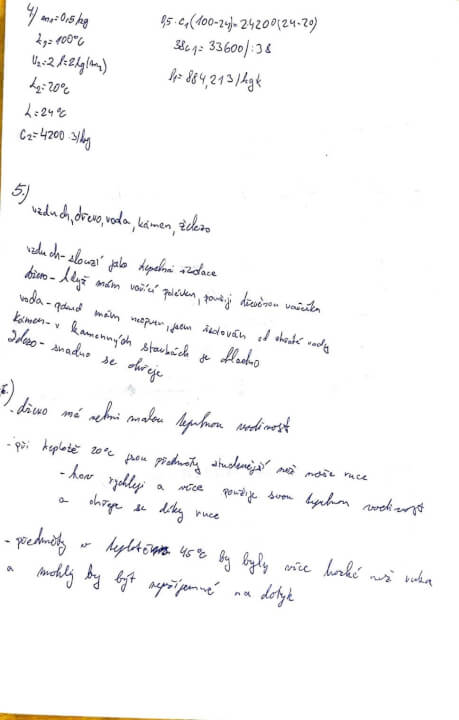 4) m₁=0,5 kg
t₁=100°C
V₂=2 l=2kg (m₂)
t₂=20°C
t=24°C
c₂=4200 J/kg
0,5·c₁(100-24)=24200(24-20)
38c₁=33600/:38
c₁=884,21J/kgK
5.)
vzduch, dřevo, voda, kámen, železo
vzduch-slouží jako tepelná izolace
dřevo-když mám vařící polévku, použiji dřevěnou vařečku
voda-pokud mám neopren, jsem izolován od studené vody
kámen-v kamenných stavbách je chladno
železo-snadno se ohřeje
-dřevo má velmi malou tepelnou vodivost
-při teplotě 20°C jsou předměty studenější než naše ruce
-kov rychleji a více použije svou tepelnou vodivost
a ohřeje se díky ruce
-předměty v teplotě 45°C by byly více horké než ruka
a mohly by být nepříjemné na dotyk